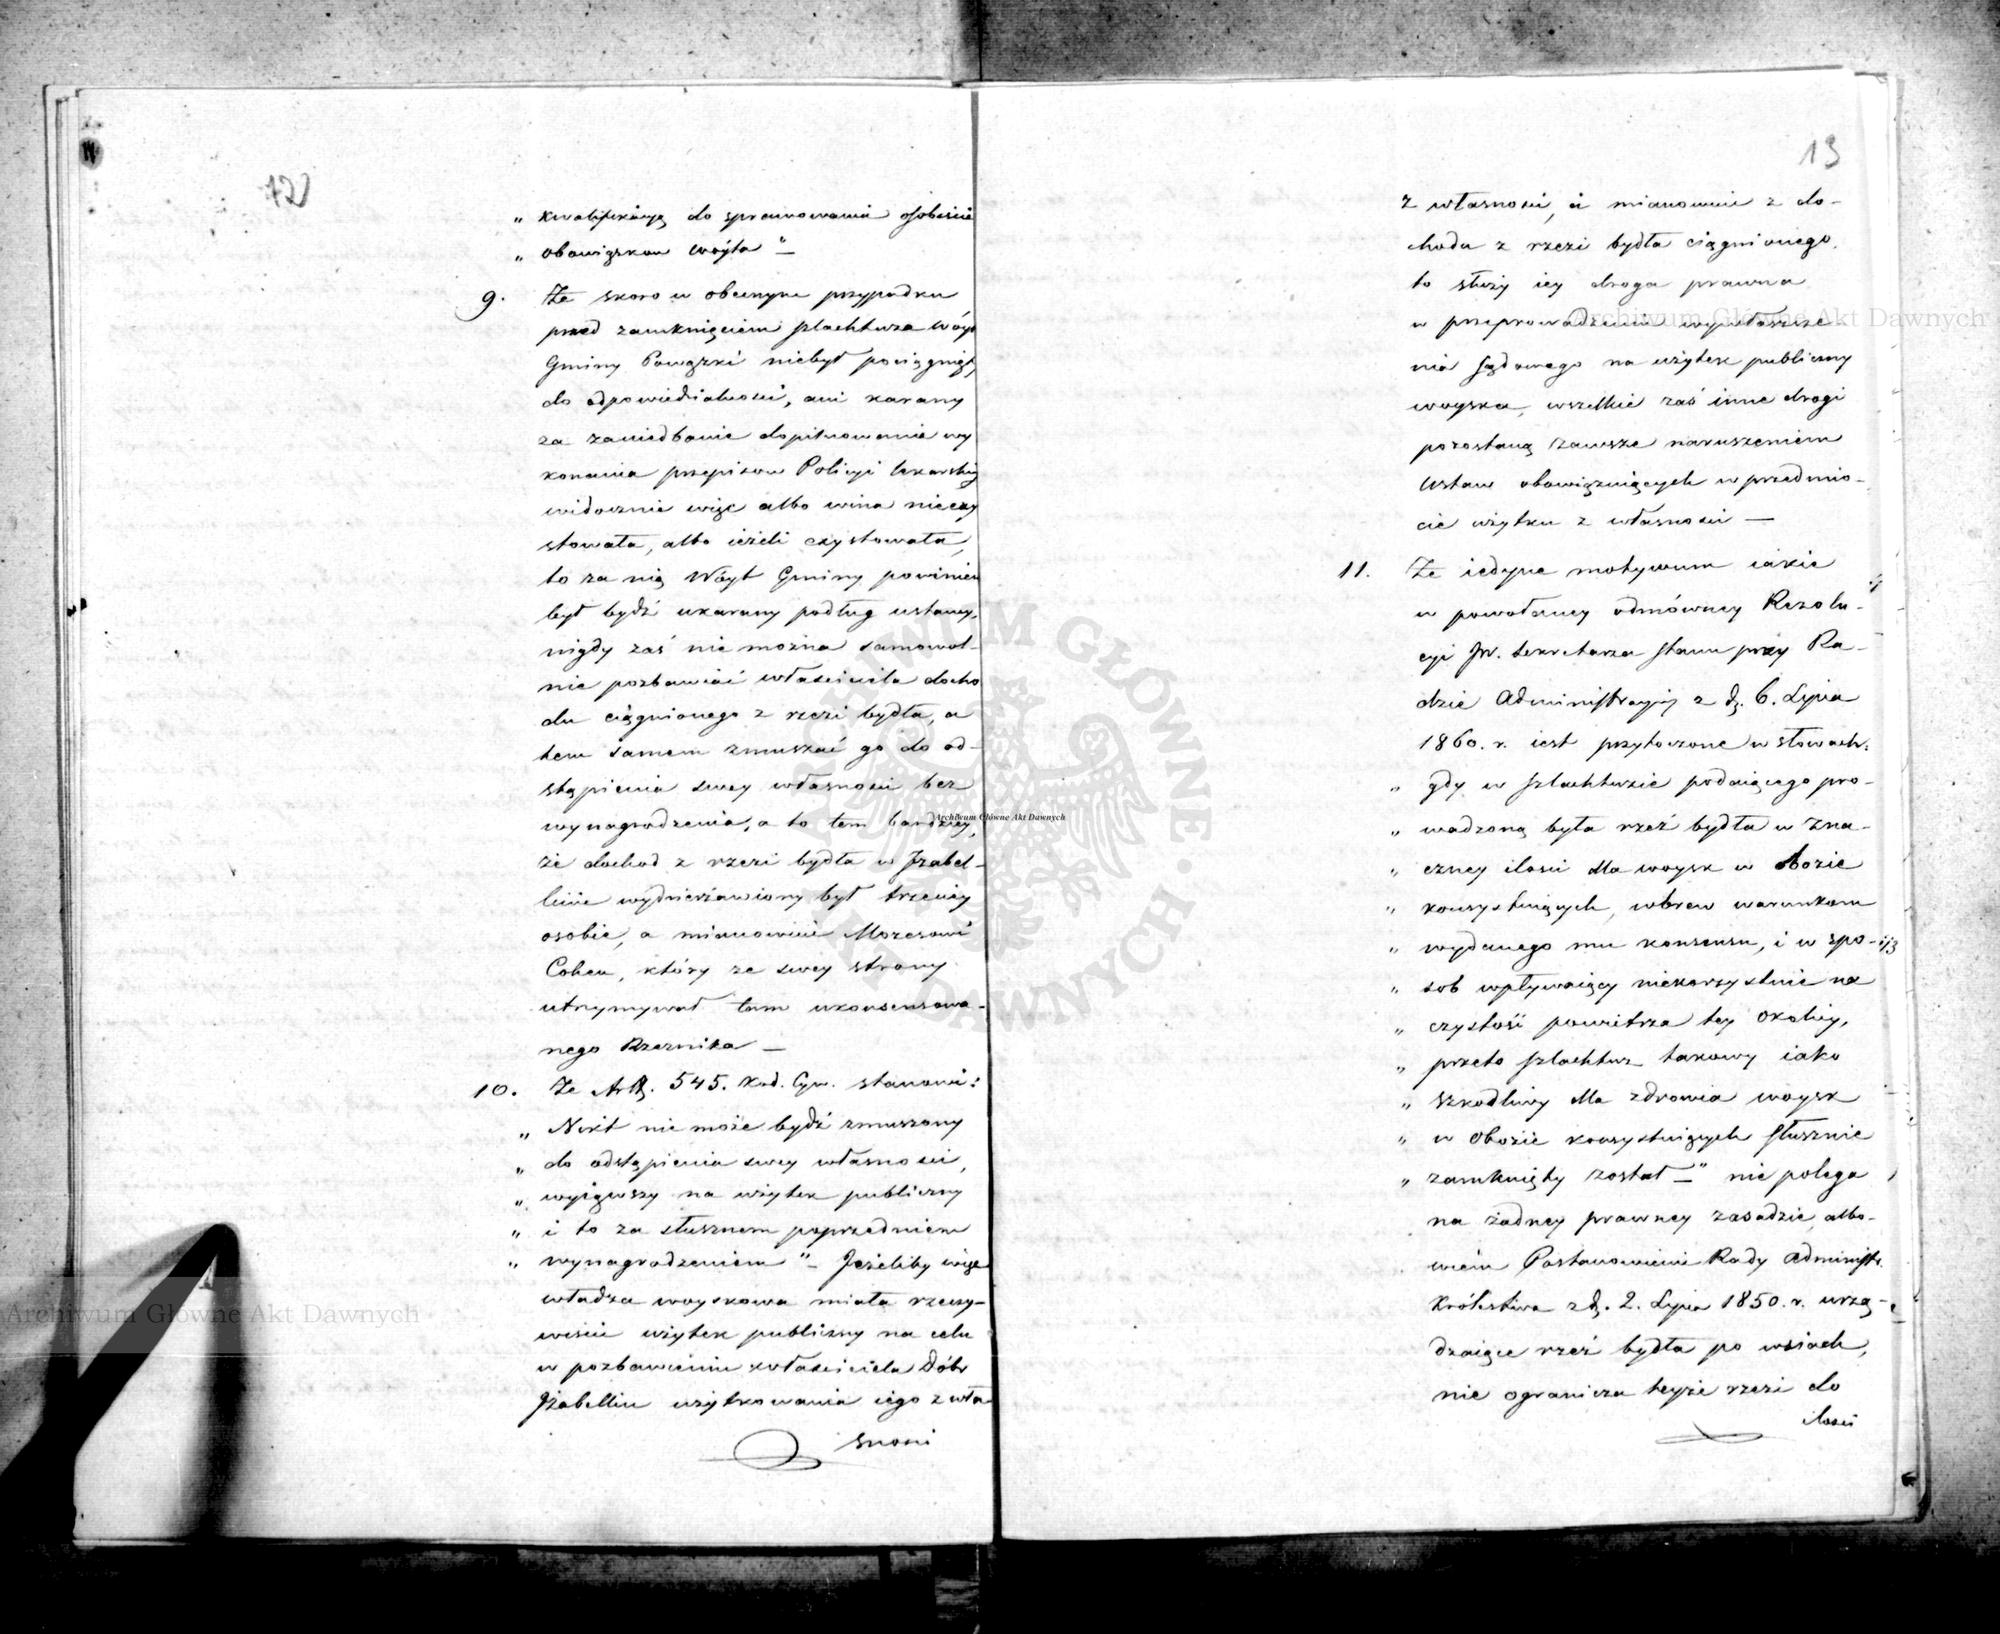 12
„ kwalifikacyą do sprawowania osobiście
„ obowiązkow Woyta" —
9. Że skoro w obecnym przypadku
przed zamknięciem szlachtuza Wóyt
Gminy Powązki niebył pociągnięty
do odpowiedzialności, ani karany
za zaniedbanie dopilnowania wy
konania przepisow Policyi lekarskiy
widocznie więc albo wina nieexy
stowała, albo ieżeli exystowała,
to za nią Wóyt Gminy powinien
był bydź ukarany podług ustawy,
nigdy zaś nie można samowol-
nie pozbawiać właściciela docho
du ciągnionego z rzezi bydła, a
tem samem zmuszać go do od-
stąpienia swey własności bez
wynagrodzenia, a to tem bardziey,
że dochod z rzezi bydła w Izabel-
linie wydzierżawiony był trzeciey
osobie, a mianowicie Mozesowi
Cohen, który ze swey strony
utrzymywał tam ukonsensowa-
nego Rzeznika —
10. Że Art. 545. Kod. Cyw. stanowi:
„ Nikt nie może bydź zmuszony
„ do odstąpienia swey własności,
„ wyiąwszy na użytek publiczny
„ i to za słusznem poprzedniem
„ wynagrodzeniem" — Jeżeliby więc
władza woyskowa miała rzeczy-
wiście użytek publiczny na celu
w pozbawieniu właściciela Dóbr
Izabellin użytkowania iego z wła
sności
13
z własności, a mianowicie z do-
chodu z rzezi bydła ciągnionego,
to służy iey droga prawna
w przeprowadzeniu wywłaszcze
nia sądowego na użytek publiczny
woyska, wszelkie zaś inne drogi
pozostaną zawsze naruszeniem
Ustaw obowiązuiących w przedmio-
cie użytku z własności —
11. Że iedyne motywum iakie
w powołaney odmówney Rezolu-
cyi JW. Sekretarza Stanu przy Ra-
dzie Administracyiney z d. 6. Lipca
1860. r. iest przytoczone w słowach:
„ gdy w szlachtuzie podaiącego pro-
„ wadzoną była rzeź bydła w zna-
„ czney ilości dla woysk w obozie
„ konsystuiących, wbrew warunkom
„ wydanego mu konsensu, i w spo-
„ sob wpływaiący niekorzystnie na
„ czystość powietrza tey okolicy,
„ przeto szlachtuz takowy iako
„ szkodliwy dla zdrowia woysk
„ w obozie konsystuiących słusznie
„ zamknięty został —" nie polega
na żadney prawney zasadzie, albo-
wiem Postanowienie Rady Administr.
Królestwa z d. 2. Lipca 1850. r. urzą-
dzaiące rzeź bydła po wsiach,
nie ogranicza teyże rzezi do
ilości
Archiwum Główne Akt Dawnych
Archiwum Główne Akt Dawnych
Archiwum Główne Akt Dawnych
ARCHIWUM GŁÓWNE AKT DAWNYCH